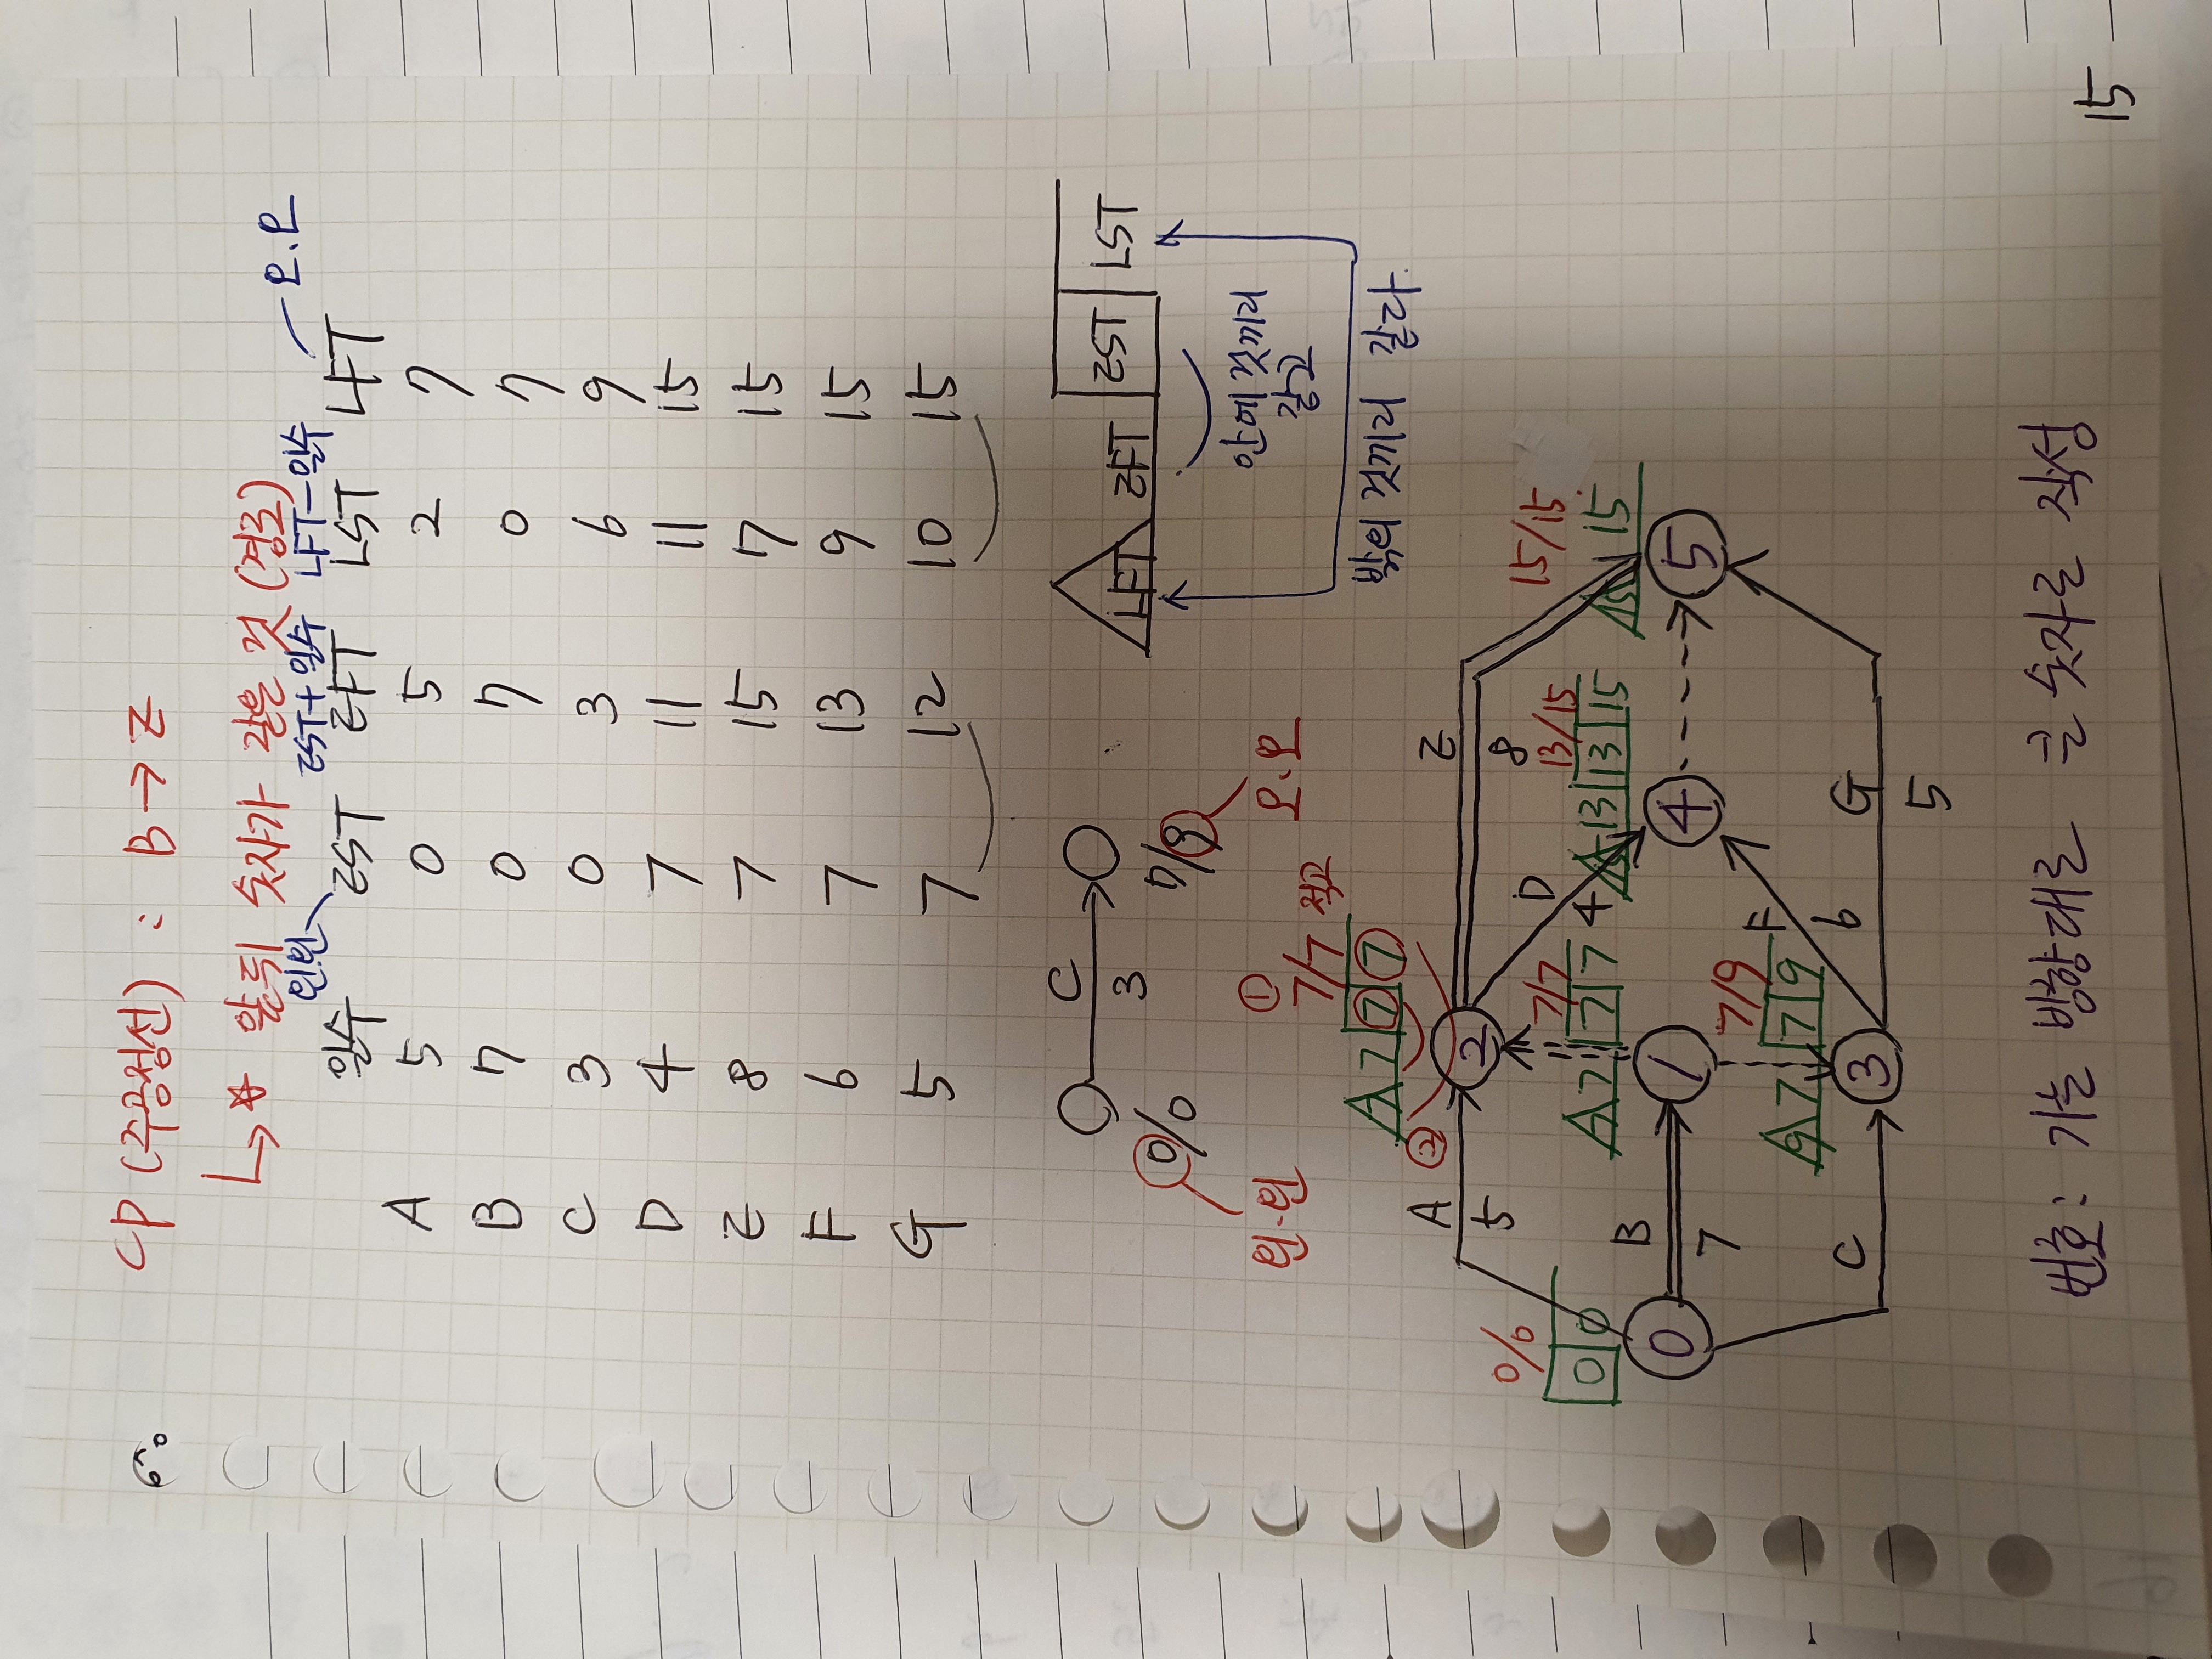 6.
CP (주공정선) : B → E
↳ * 앞뒤 숫자가 같은 것 (경로)
왼.왼 EST+일수 LFT-일수 오.오
일수 EST EFT LST LFT
A 5 0 5 2 7
B 7 0 7 0 7
C 3 0 3 6 9
D 4 7 11 11 15
E 8 7 15 7 15
F 6 7 13 9 15
G 5 7 12 10 15
C
3
0/0 7/9
왼.왼 오.오
LFT EFT EST LST
안에 것끼리
같고
밖의 것끼리 같다
① 7/7 적고
②
7 7 7
A
5
E
8
15/15
15 15
0/0
0 0
7/7
7 7 7
D
4
13/15
13 13 15
0 1 2 3 4 5
B
7
7/9
9 7 7 9
F
6
C
G
5
번호 : 가는 방향대로 큰 숫자로 작성
15